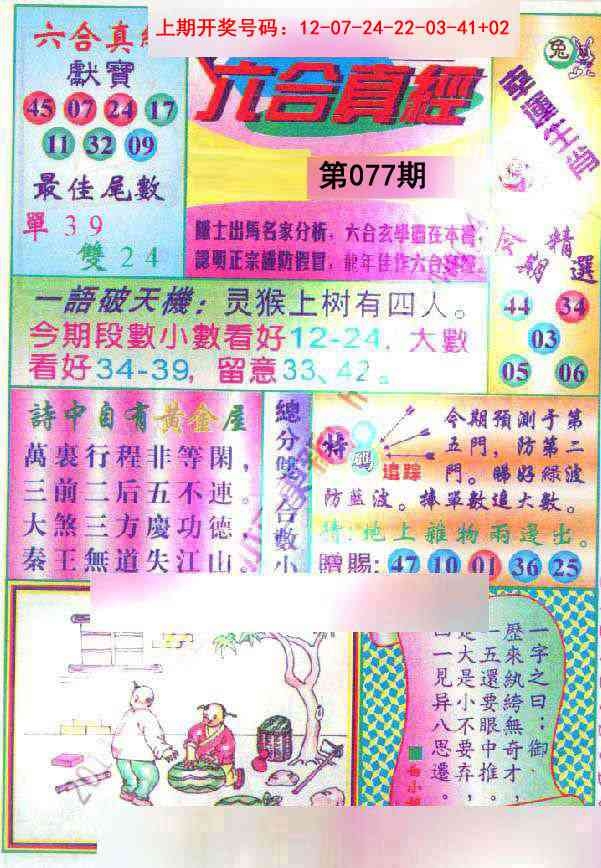 上期开奖号码：12-07-24-22-03-41+02
六合真
獻寶
45 07 24 17
11 32 09
最佳尾數
單39
雙24
六合真經
第077期
兔
幸運生肖
今期精選
44 34
03
05 06
一語破天機：灵猴上树有四人。
今期段數小數看好12-24，大數
看好34-39，留意33、42。
詩中自有黃金屋
萬裏行程非等閑，
三前二后五不連。
大煞三方慶功德，
秦王無道失江山。
總分雙合數小
特碼追踪
今期預測予第
五門，防第二
門。睇好綠波
防藍波。捧單數追大數。
猜：地上雜物兩邊出。
贈賜：47 10 01 36 25
一字之曰：御
歷來紈绔無奇才，
一五還要眼中推。
是大是小不要弃，
一見异八思遷。